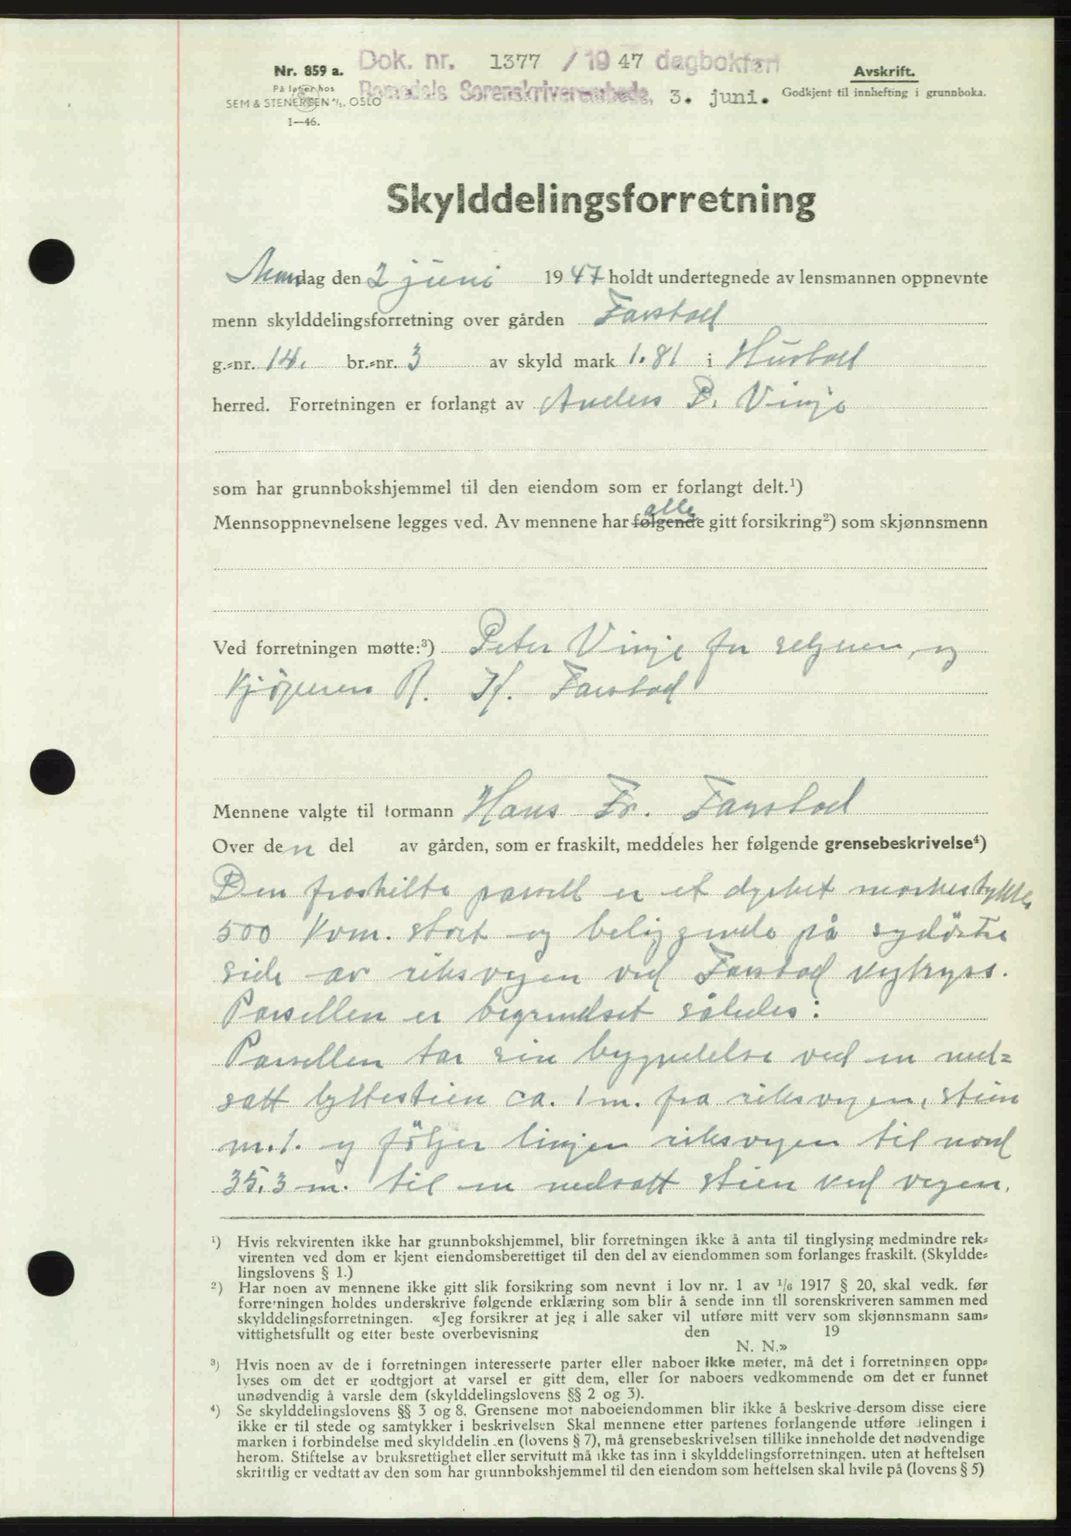 Nr. 859 a.
På lager hos
SEM & STENERSEN A/S, OSLO
1—46.
Dok. nr. 1377 / 1947 dagbokført
Romsdals Sorenskriverembede, 3. juni.
Avskrift.
Godkjent til innhefting i grunnboka.
Skylddelingsforretning
Mandag den 2 juni 1947 holdt undertegnede av lensmannen oppnevnte
menn skylddelingsforretning over gården Farstad
g.-nr. 14. br.-nr. 3 av skyld mark 1.81 i Hustad
herred. Forretningen er forlangt av Anders P. Vinje
som har grunnbokshjemmel til den eiendom som er forlangt delt.¹)
alle
Mennsoppnevnelsene legges ved. Av mennene har følgende gitt forsikring²) som skjønnsmenn
Ved forretningen møtte:³) Peter Vinje for selgeren, og
kjøperen R. K. Farstad
Mennene valgte til formann Hans Fr. Farstad
Over den del av gården, som er fraskilt, meddeles her følgende grensebeskrivelse⁴)
Den fraskilte parsell er et dyrket markestykke,
500 kvm. stort og beliggende på sydöstre
side av riksvegen ved Farstad vegkryss.
Parsellen er begrendset således:
Parsellen tar sin begyndelse ved en ned=
satt byttestien ca. 1 m. fra riksvegen, stien
m. 1. og fölger linjen riksvegen til nord
35,3 m. til en nedsatt stien ved vegen.
¹) Hvis rekvirenten ikke har grunnbokshjemmel, blir forretningen ikke å anta til tinglysing medmindre rek-
virenten ved dom er kjent eiendomsberettiget til den del av eiendommen som forlanges fraskilt. (Skyldde-
lingslovens § 1.)
²) Har noen av mennene ikke gitt slik forsikring som nevnt i lov nr. 1 av 1/6 1917 § 20, skal vedk. før
forretningen holdes underskrive følgende erklæring som blir å sende inn til sorenskriveren sammen med
skylddelingsforretningen. «Jeg forsikrer at jeg i alle saker vil utføre mitt verv som skjønnsmann sam-
vittighetsfullt og etter beste overbevisning den 19
N. N.»
³) Hvis noen av de i forretningen interesserte parter eller naboer ikke møter, må det i forretningen opp-
lyses om det er godtgjort at varsel er gitt dem, eller for naboers vedkommende om det er funnet
unødvendig å varsle dem (skylddelingslovens §§ 2 og 3).
⁴) Se skylddelingslovens §§ 3 og 8. Grensene mot naboeiendommen blir ikke å beskrive dersom disse eiere
ikke er til stede og samtykker i beskrivelsen Skal mennene etter partenes forlangende utføre delingen i
marken i forbindelse med skylddelingen (lovens § 7), må grensebeskrivelsen tillike inneholde det nødvendige
herom. Stiftelse av bruksrettighet eller servitutt må ikke tas inn i skylddelingsforretningen. uten at heftelsen
skriftlig er vedtatt av den som har grunnbokshjemmel til den eiendom som heftelsen skal hvile på (lovens § 5)